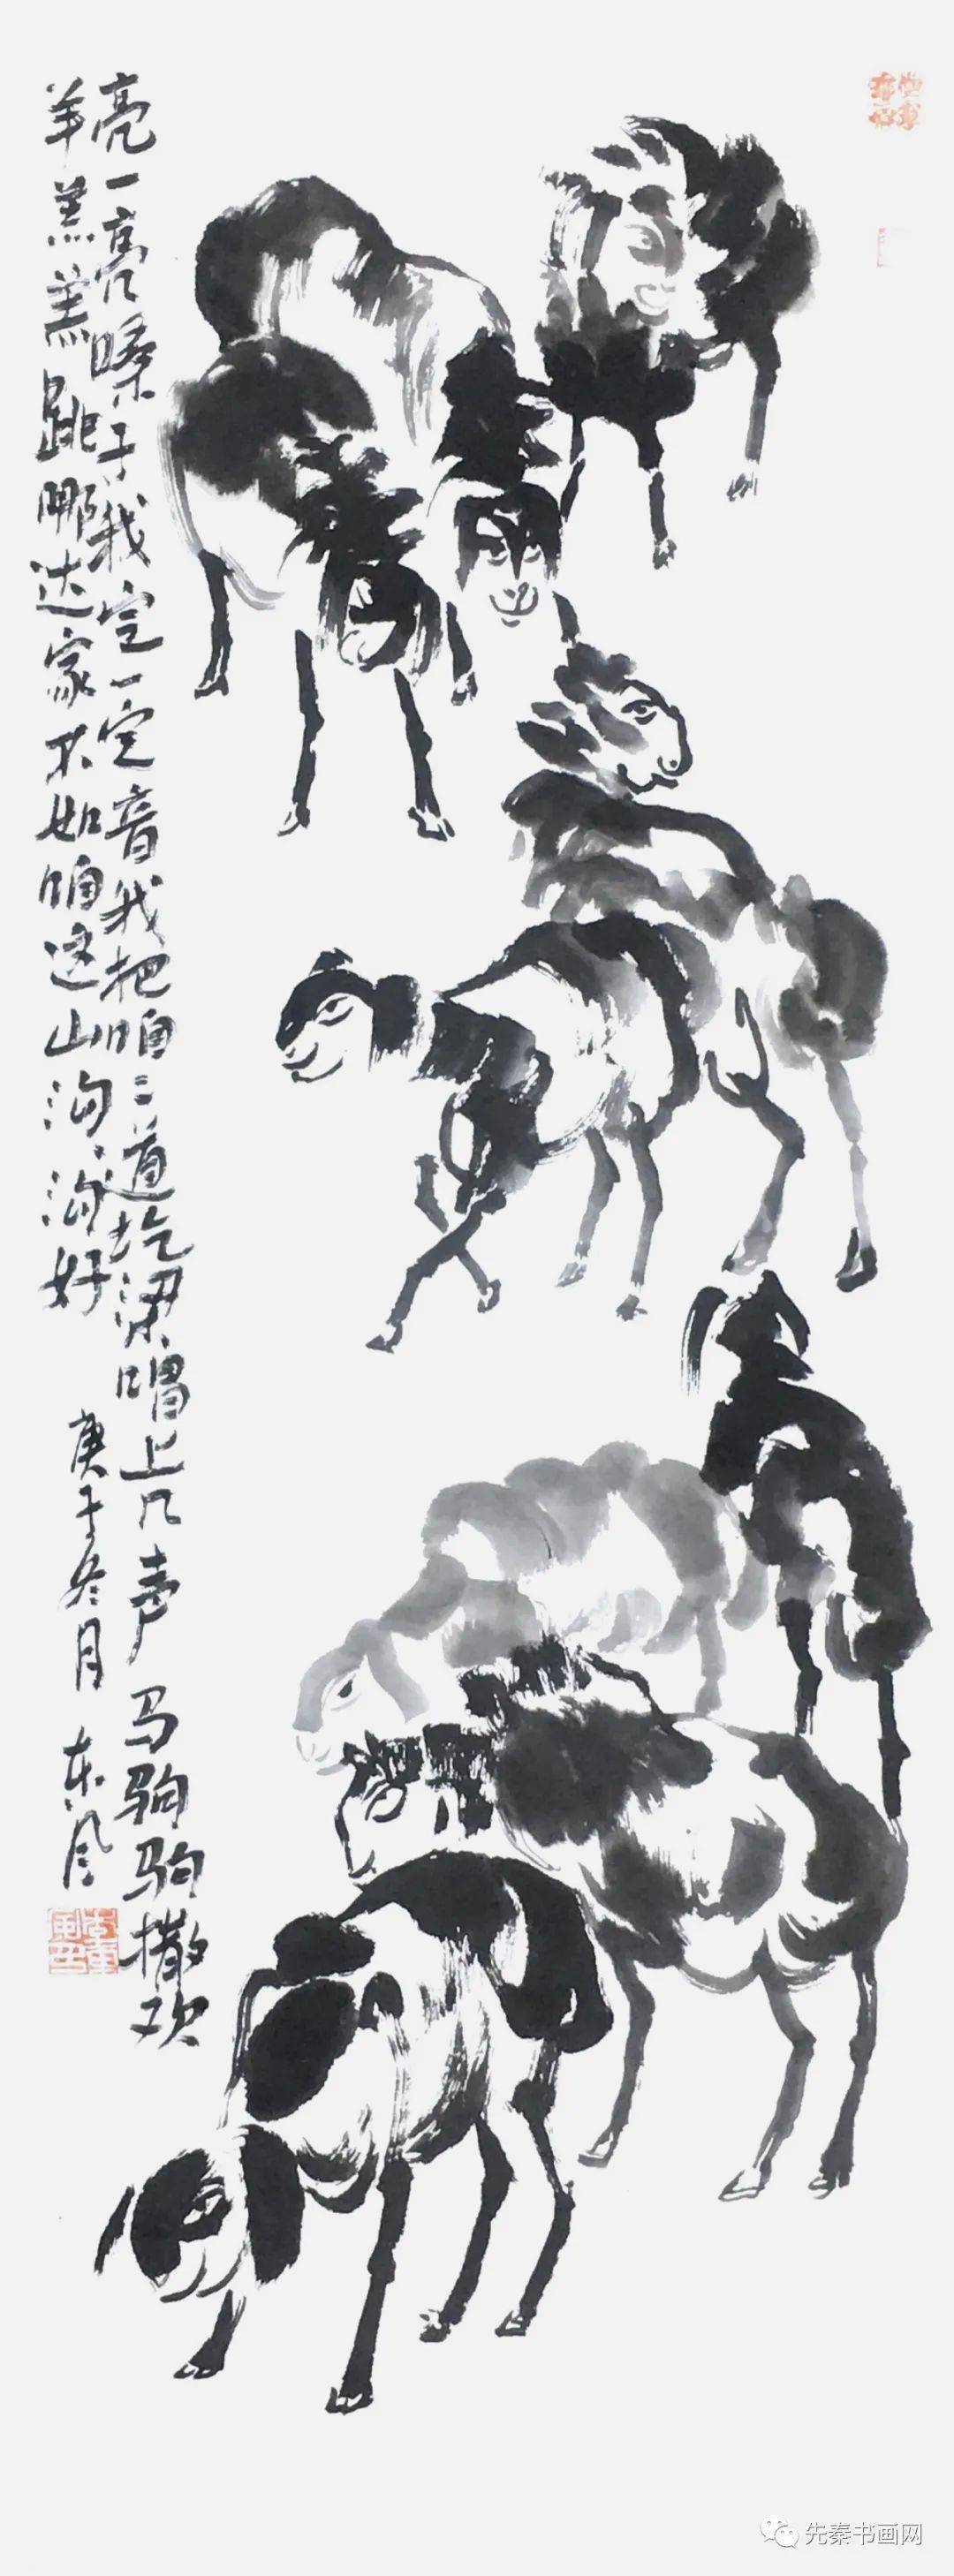 亮一亮嗓子我定一定音我把咱二道圪梁唱上几声马驹驹撒欢
羊羔羔跳哪达家不如咱这山沟沟好
庚子冬月东风
先秦书画网